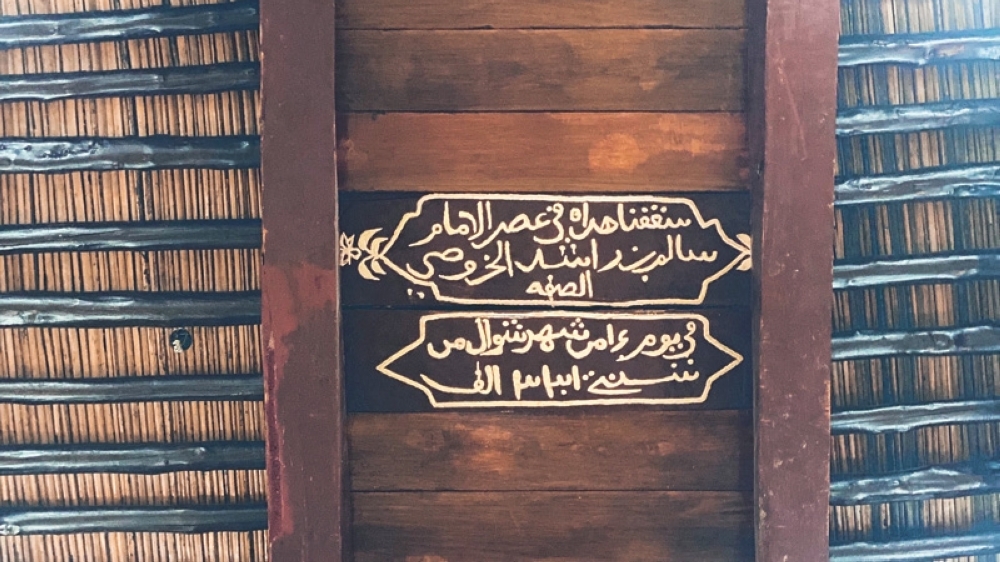 سقفنا هذاه في عصر الامام
سالم بن راشد الخروصي
الصفه
في يوم ٤ من شهر شوال من
سنة الف